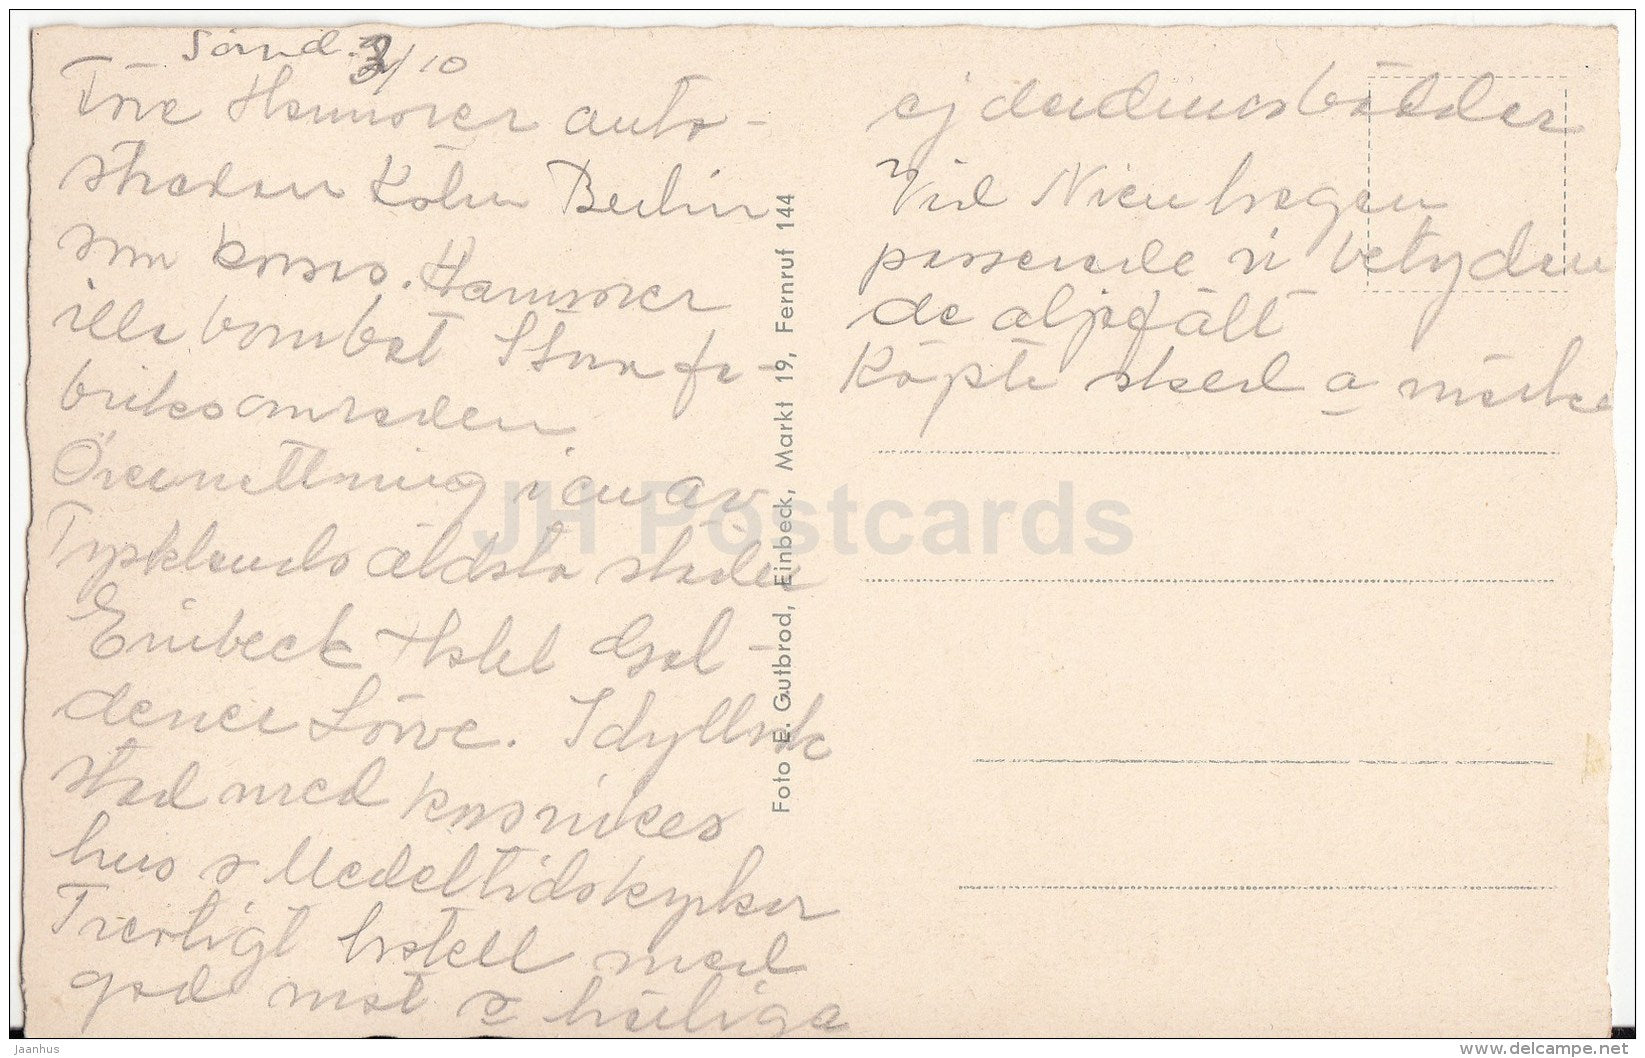 Sönd. 3/10
Före Hannover auto-
stradan Köln Berlin
som korsas. Hannover
illa bombat Stora fa-
briksområden
Övernattning i en av
Tysklands äldsta städer
Einbeck Hotel Gol-
dener Löwe. Idyllisk
stad med korsvirkes
hus o Medeltidskyrkor
Trevligt hotell med
god mat o härliga
ejderdunsbäddar
Vid Nienhagen
passerade vi betydan
de oljefält
Köpte sked o märke
Foto E. Gutbrod, Einbeck, Markt 19, Fernruf 144
JH Postcards
jaanhus
delcampe.net